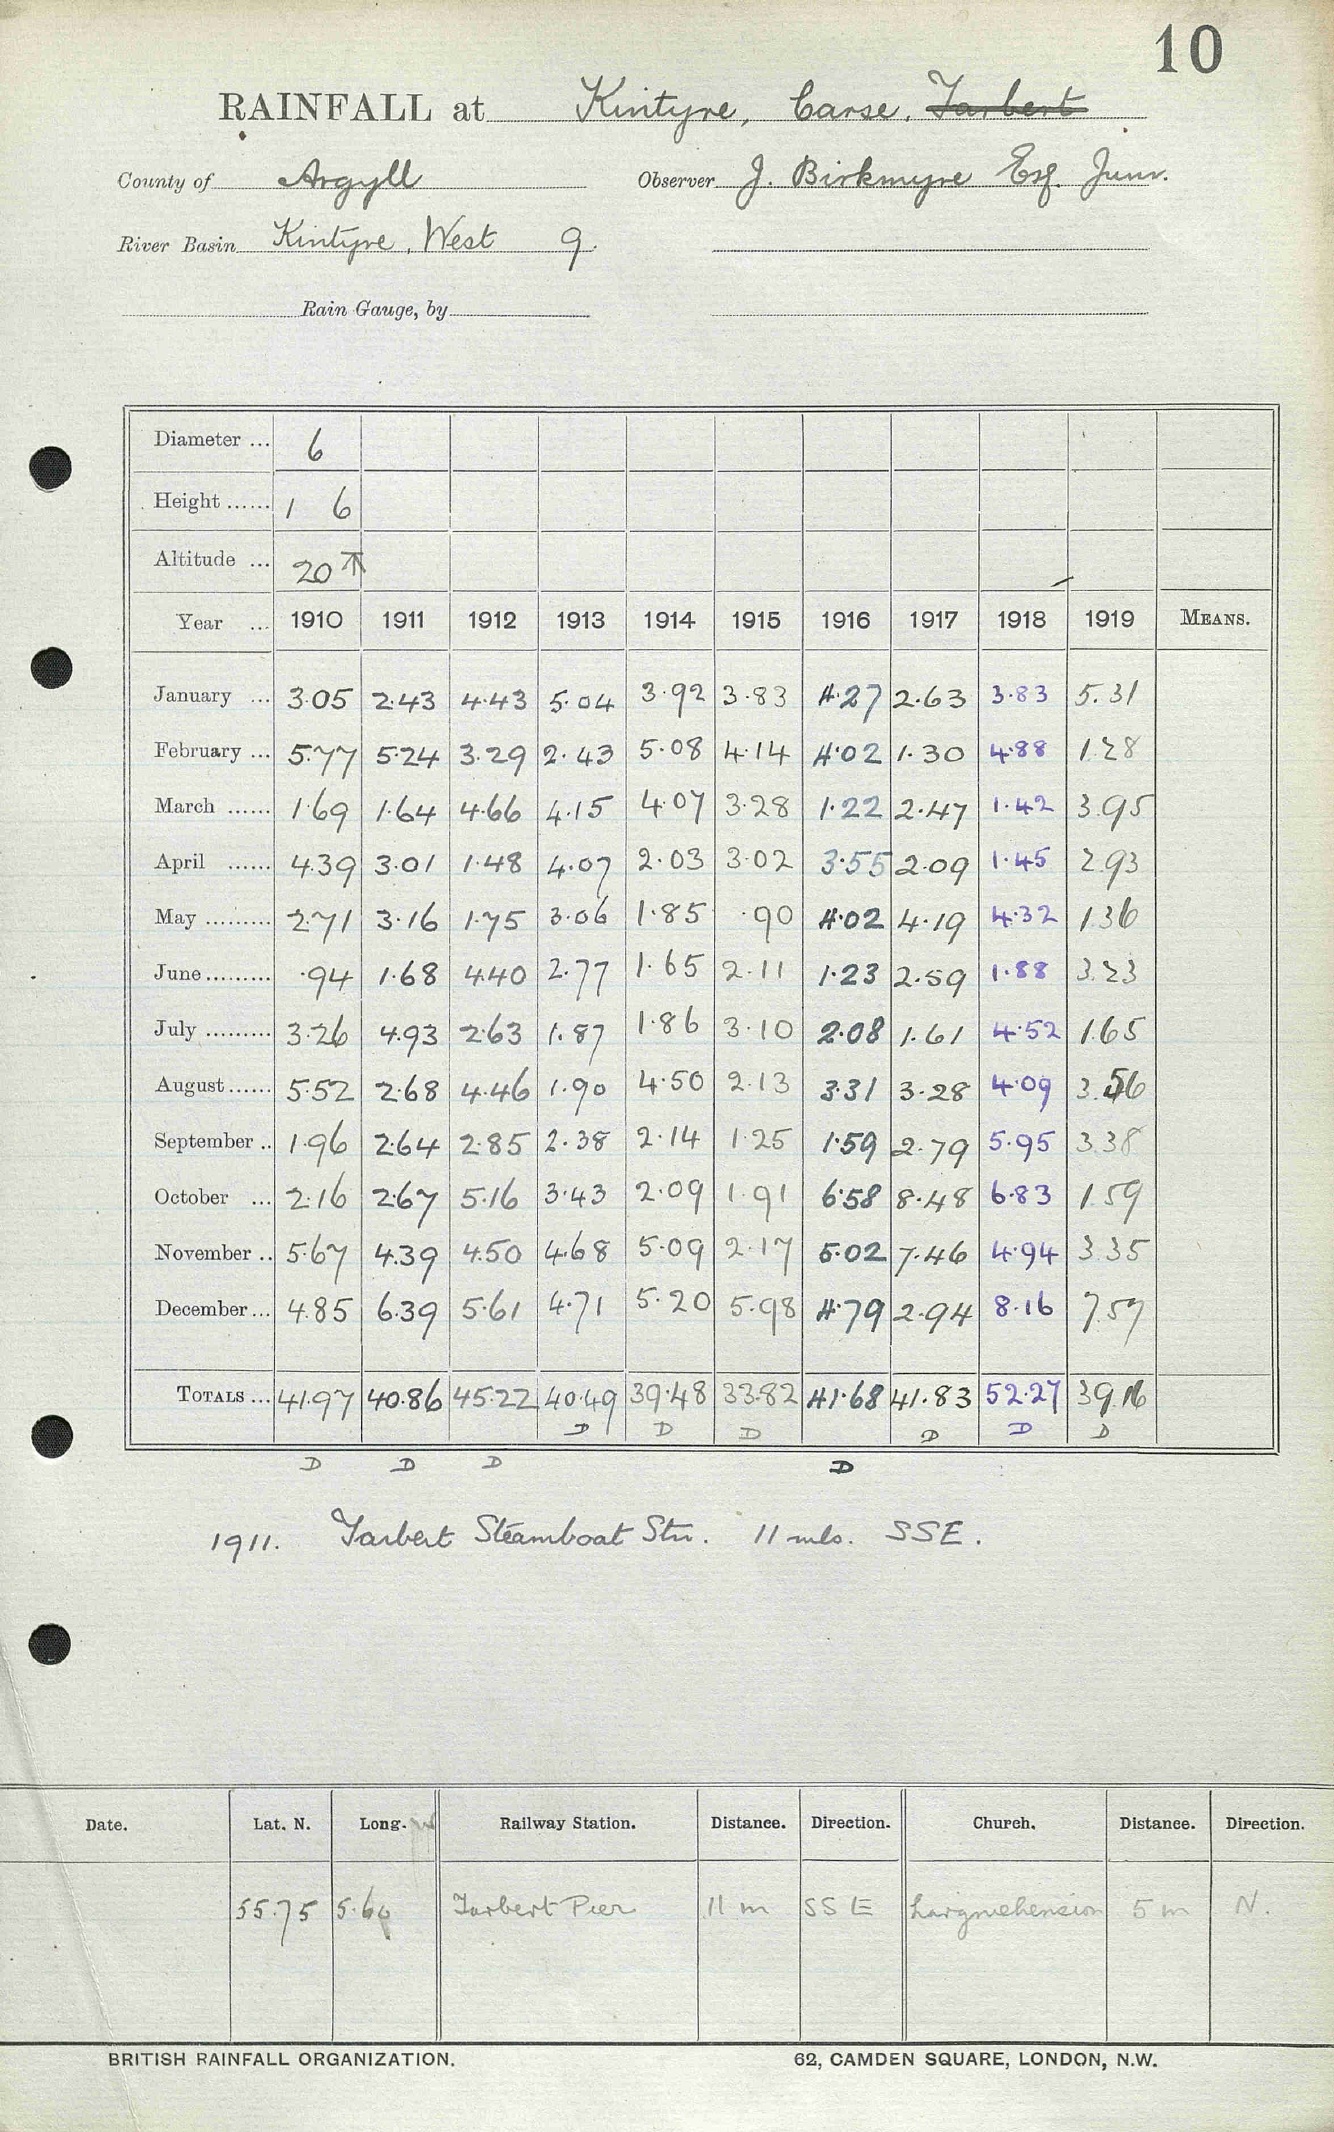 10
RAINFALL at Kintyre, Carse, Tarbert
County of Argyll Observer J. Birkmyre Esq. Junr.
River Basin Kintyre, West 9.
Rain Gauge, by
Diameter ... 6
Height ...... 1 6
Altitude ... 20
Year ... 1910 1911 1912 1913 1914 1915 1916 1917 1918 1919 MEANS.
January ... 3.05 2.43 4.43 5.04 3.92 3.83 4.27 2.63 3.83 5.31
February ... 5.77 5.24 3.29 2.43 5.08 4.14 4.02 1.30 4.88 1.28
March ...... 1.69 1.64 4.66 4.15 4.07 3.28 1.22 2.47 1.42 3.95
April ...... 4.39 3.01 1.48 4.07 2.03 3.02 3.55 2.09 1.45 2.93
May ......... 2.71 3.16 1.75 3.06 1.85 .90 4.02 4.19 4.32 1.36
June ......... .94 1.68 4.40 2.77 1.65 2.11 1.23 2.59 1.88 3.23
July ......... 3.26 4.93 2.63 1.87 1.86 3.10 2.08 1.61 4.52 1.65
August ...... 5.52 2.68 4.46 1.90 4.50 2.13 3.31 3.28 4.09 3.56
September .. 1.96 2.64 2.85 2.38 2.14 1.25 1.59 2.79 5.95 3.38
October ... 2.16 2.67 5.16 3.43 2.09 1.91 6.58 8.48 6.83 1.59
November .. 5.67 4.39 4.50 4.68 5.09 2.17 5.02 7.46 4.94 3.35
December ... 4.85 6.39 5.61 4.71 5.20 5.98 4.79 2.94 8.16 7.57
TOTALS ... 41.97 40.86 45.22 40.49 39.48 33.82 41.68 41.83 52.27 39.16
D D D D D D
D D D D
1911. Tarbert Steamboat Stn. 11 mls. SSE.
Date. Lat. N. Long. W Railway Station. Distance. Direction. Church. Distance. Direction.
55.75 Tarbert Pier 11 m SSE 5 m N.
BRITISH RAINFALL ORGANIZATION. 62, CAMDEN SQUARE, LONDON, N.W.